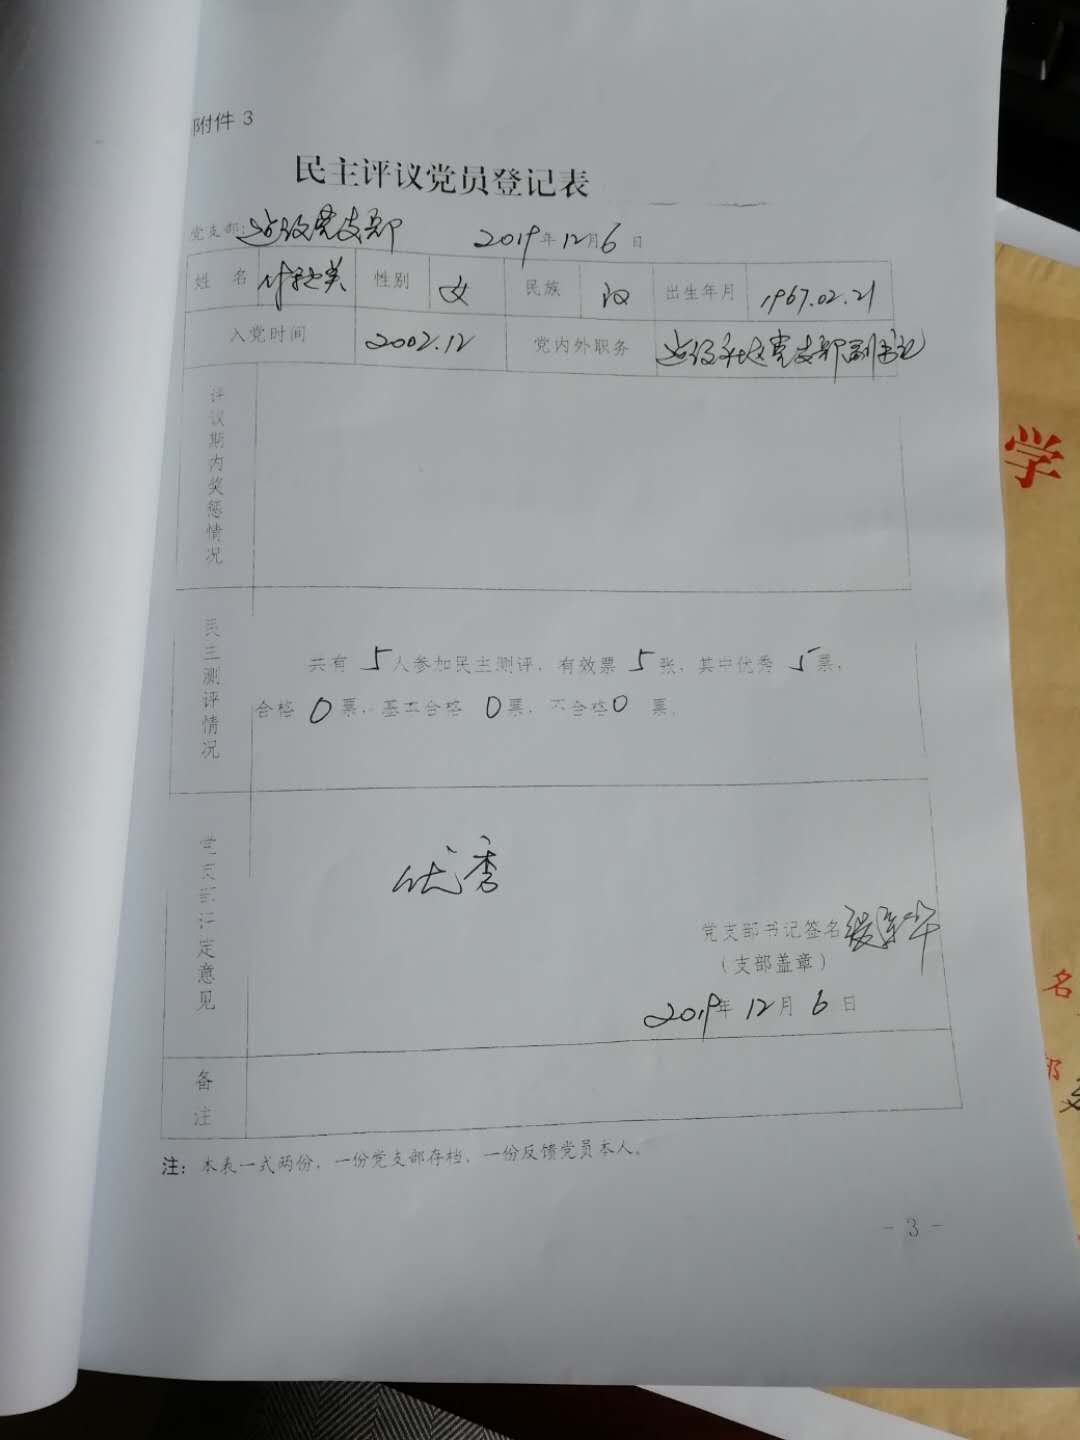 附件 3
民主评议党员登记表
党支部: 党支部 2019年12月6日
姓 名 性别 女 民族 汉 出生年月 1967.02.21
入党时间 2002.12 党内外职务 社区党支部副书记
评议期内奖惩情况
民主测评情况
共有 5 人参加民主测评，有效票 5 张，其中优秀 5 票，
合格 0 票，基本合格 0 票，不合格 0 票。
党支部评定意见
优秀
党支部书记签名
（支部盖章）
2019年 12月 6 日
备注
注：本表一式两份，一份党支部存档，一份反馈党员本人。
- 3 -
学
名
部